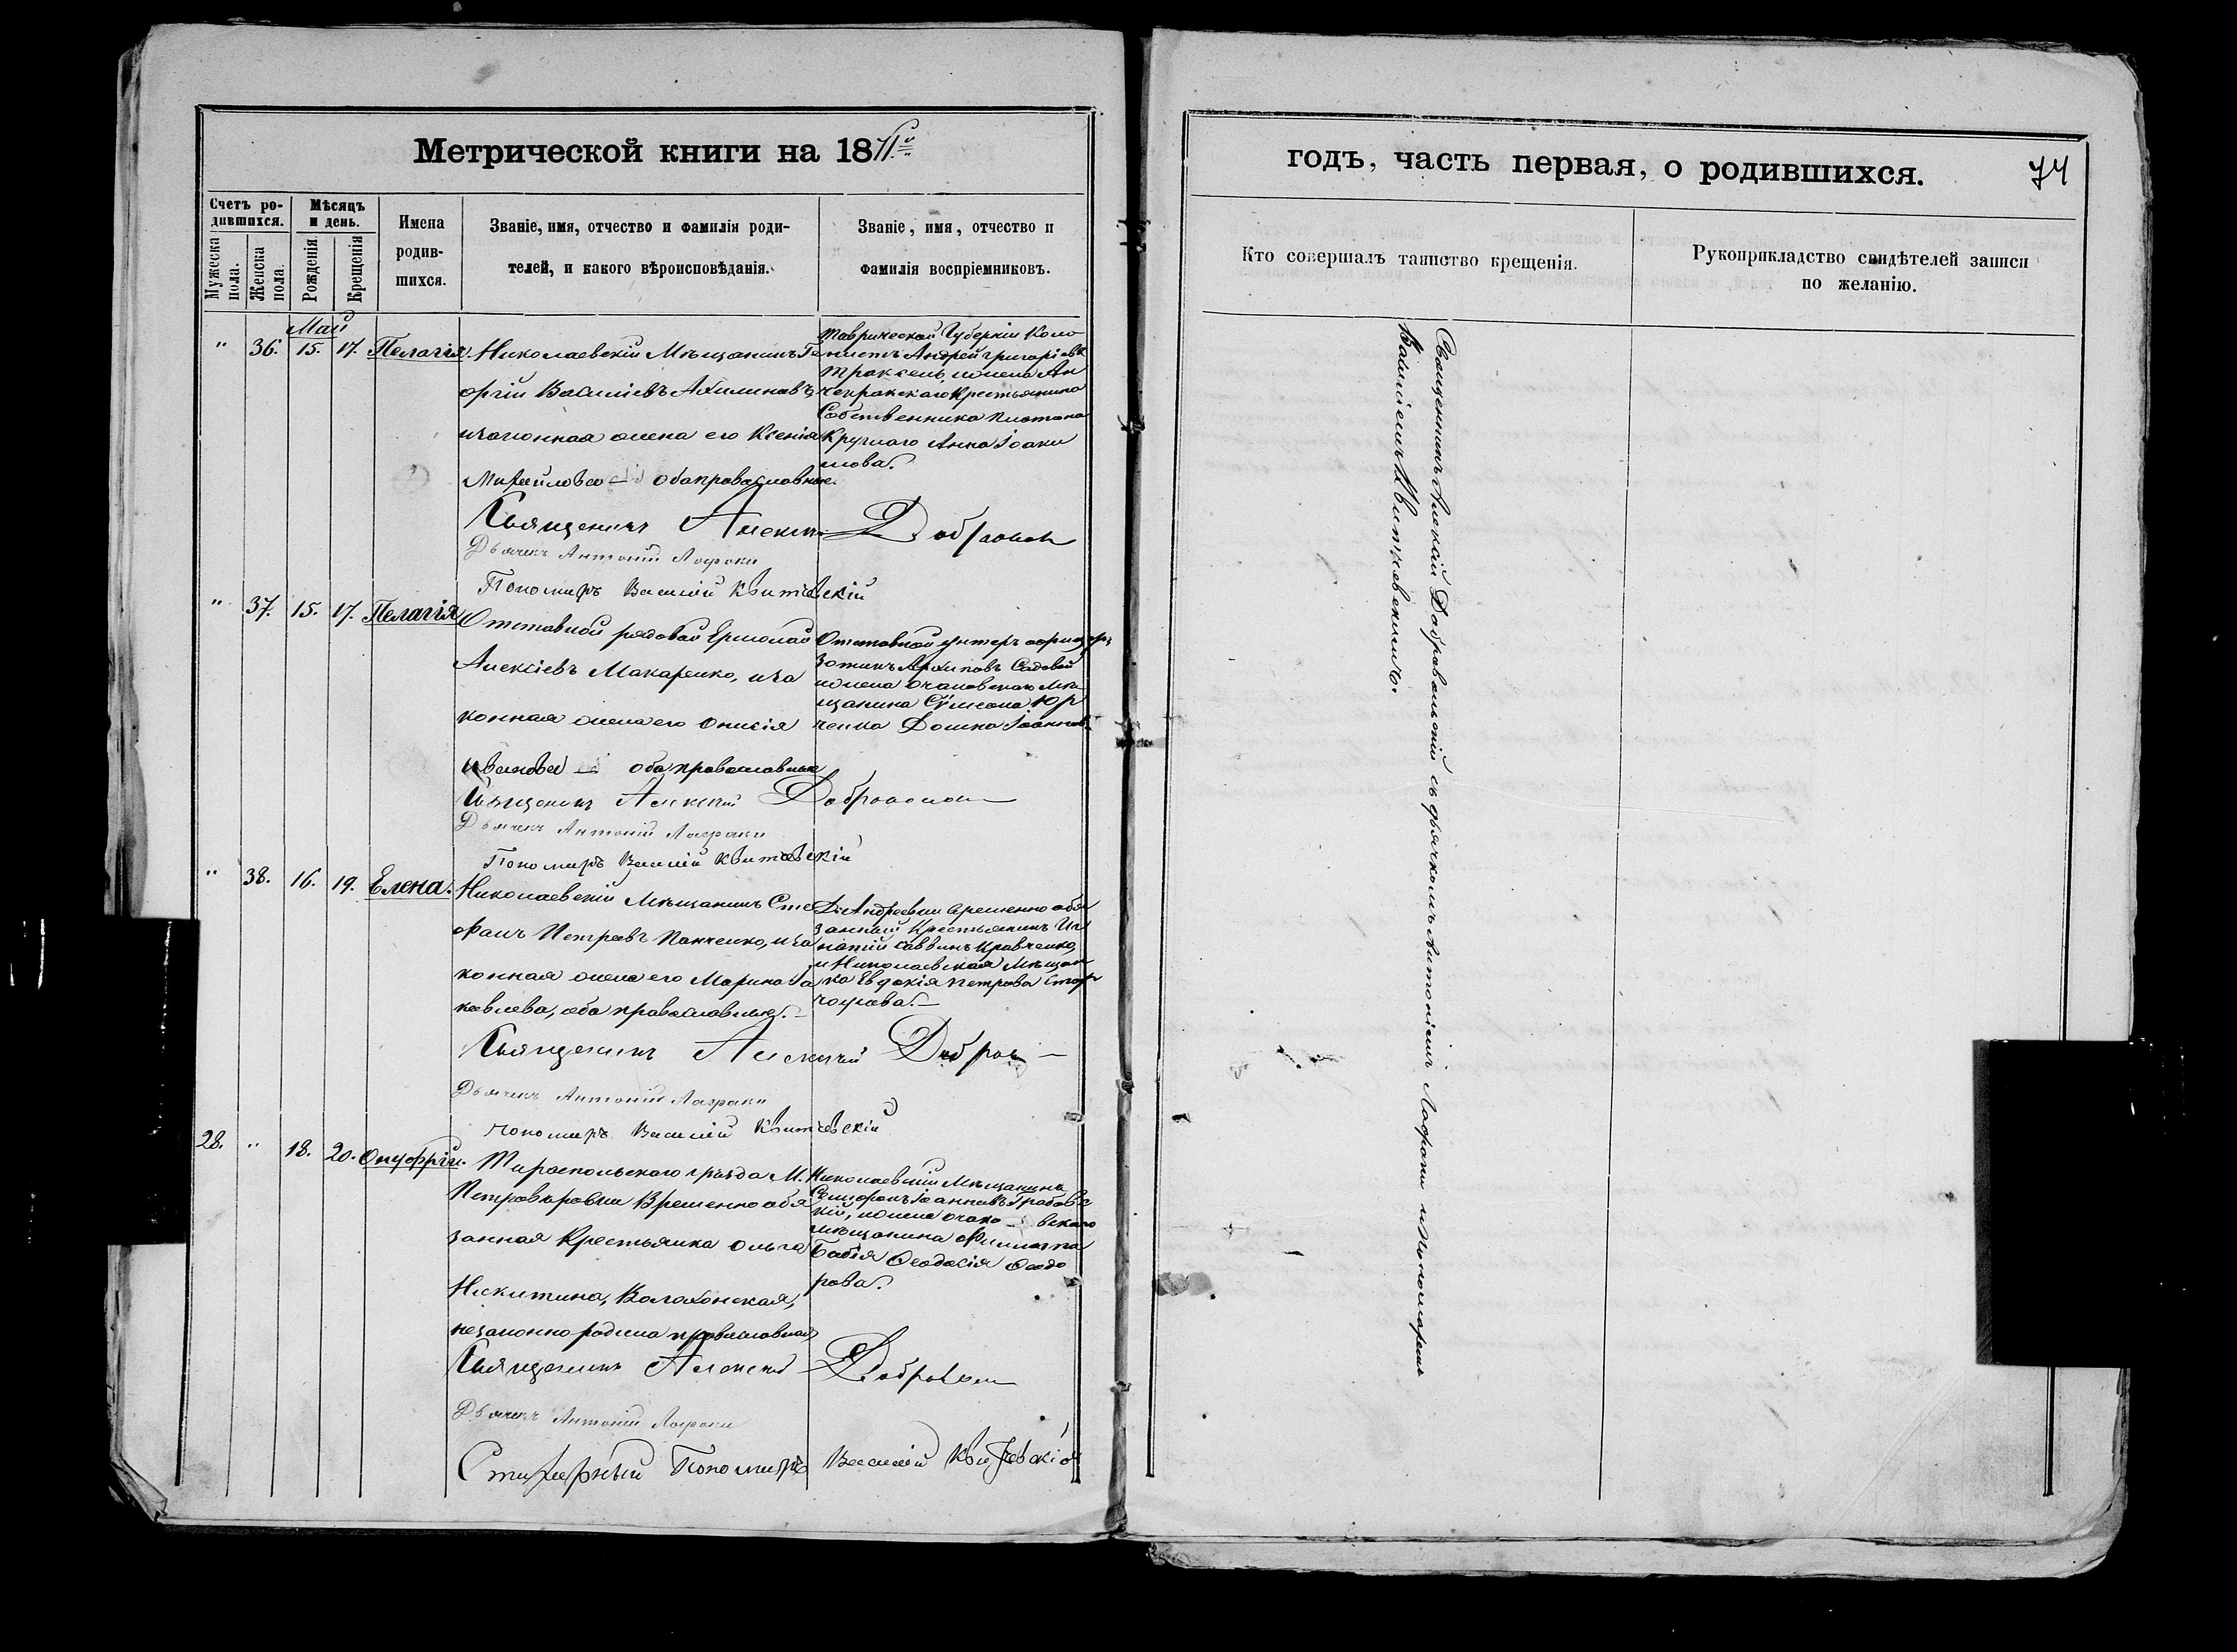 Метрической книги на 1871й
Счетъ ро-
дившихся.
Мужеска пола.
Женска пола.
Мѣсяцъ
и день.
Рожденія.
Крещенія
Имена
родив-
шихся.
Званіе, имя, отчество и фамилія роди-
телей, и какого вѣроисповѣданія.
Званіе, имя, отчество и
фамилія воспріемниковъ.
Май
" 36. 15. 17. Пелагія.
Николаевскій Мѣщанинъ Ге
оргій Василіевъ
изаконная жена его Ксенія
Михайлова — оба православные.
Таврической Губерніи Коло
нистъ Андрей Григоріевъ
ижена Ан
Крестьянина
Собственника
Круглаго Анна Іоаки
мова.
Священникъ Алексій
Дьячекъ Антоній Лафаки
Пономарь Василій Квитковскій
" 37. 15. 17. Пелагія
Отставной рядовой Ермолай
Алексіевъ Макаренко, иза
конная жена его Онисія
Иванова — оба православные
Отставной унтеръ офицеръ
Зотикъ Архиповъ Садовой
ижена Очаковскаго Мѣ
щанина Сѵмеона Юр
ченка Домна Іоаннов.
Священникъ Алексій
Дьячекъ Антоній Лафаки
Пономарь Василій Квитковскій
" 38. 16. 19. Елена.
Николаевскій Мѣщанинъ Сте
фанъ Петровъ Панченко, иза
конная жена его Марина Іа
ковлева, оба православные. —
Д. Андреевки временно обя
занный Крестьянинъ Иг
натій Саввинъ Кравченко,
и Николаевская Мѣщан
ка Евдокія Петрова
Священникъ Алексій
Дьячекъ Антоній Лафаки
Пономарь Василій Квитковскій
28. " 18. 20. Онуфрій.
Тираспольскаго уѣзда М.
Петровѣровки Временно обя
занная Крестьянка Ольга
Никитина, Волохонская,
незаконно родила православная
Николаевскій Мѣщанинъ
Іоанновъ Грабовс
кій, ижена Очако — вскаго
мѣщанина Филиппа
Бабія Ѳеодосія Ѳеодо
рова.
Священникъ Алексій
Дьячекъ Антоній Лафаки
Стихарный Пономарь Василій Квитковскій
годъ, часть первая, о родившихся.
74
Кто совершалъ таинство крещенія.
Рукоприкладство свидѣтелей записи
по желанію.
Священникъ Алексій Добровольскій съ дьячкомъ Антоніемъ Лафаки и Пономаремъ
Василіемъ Квитковскимъ.